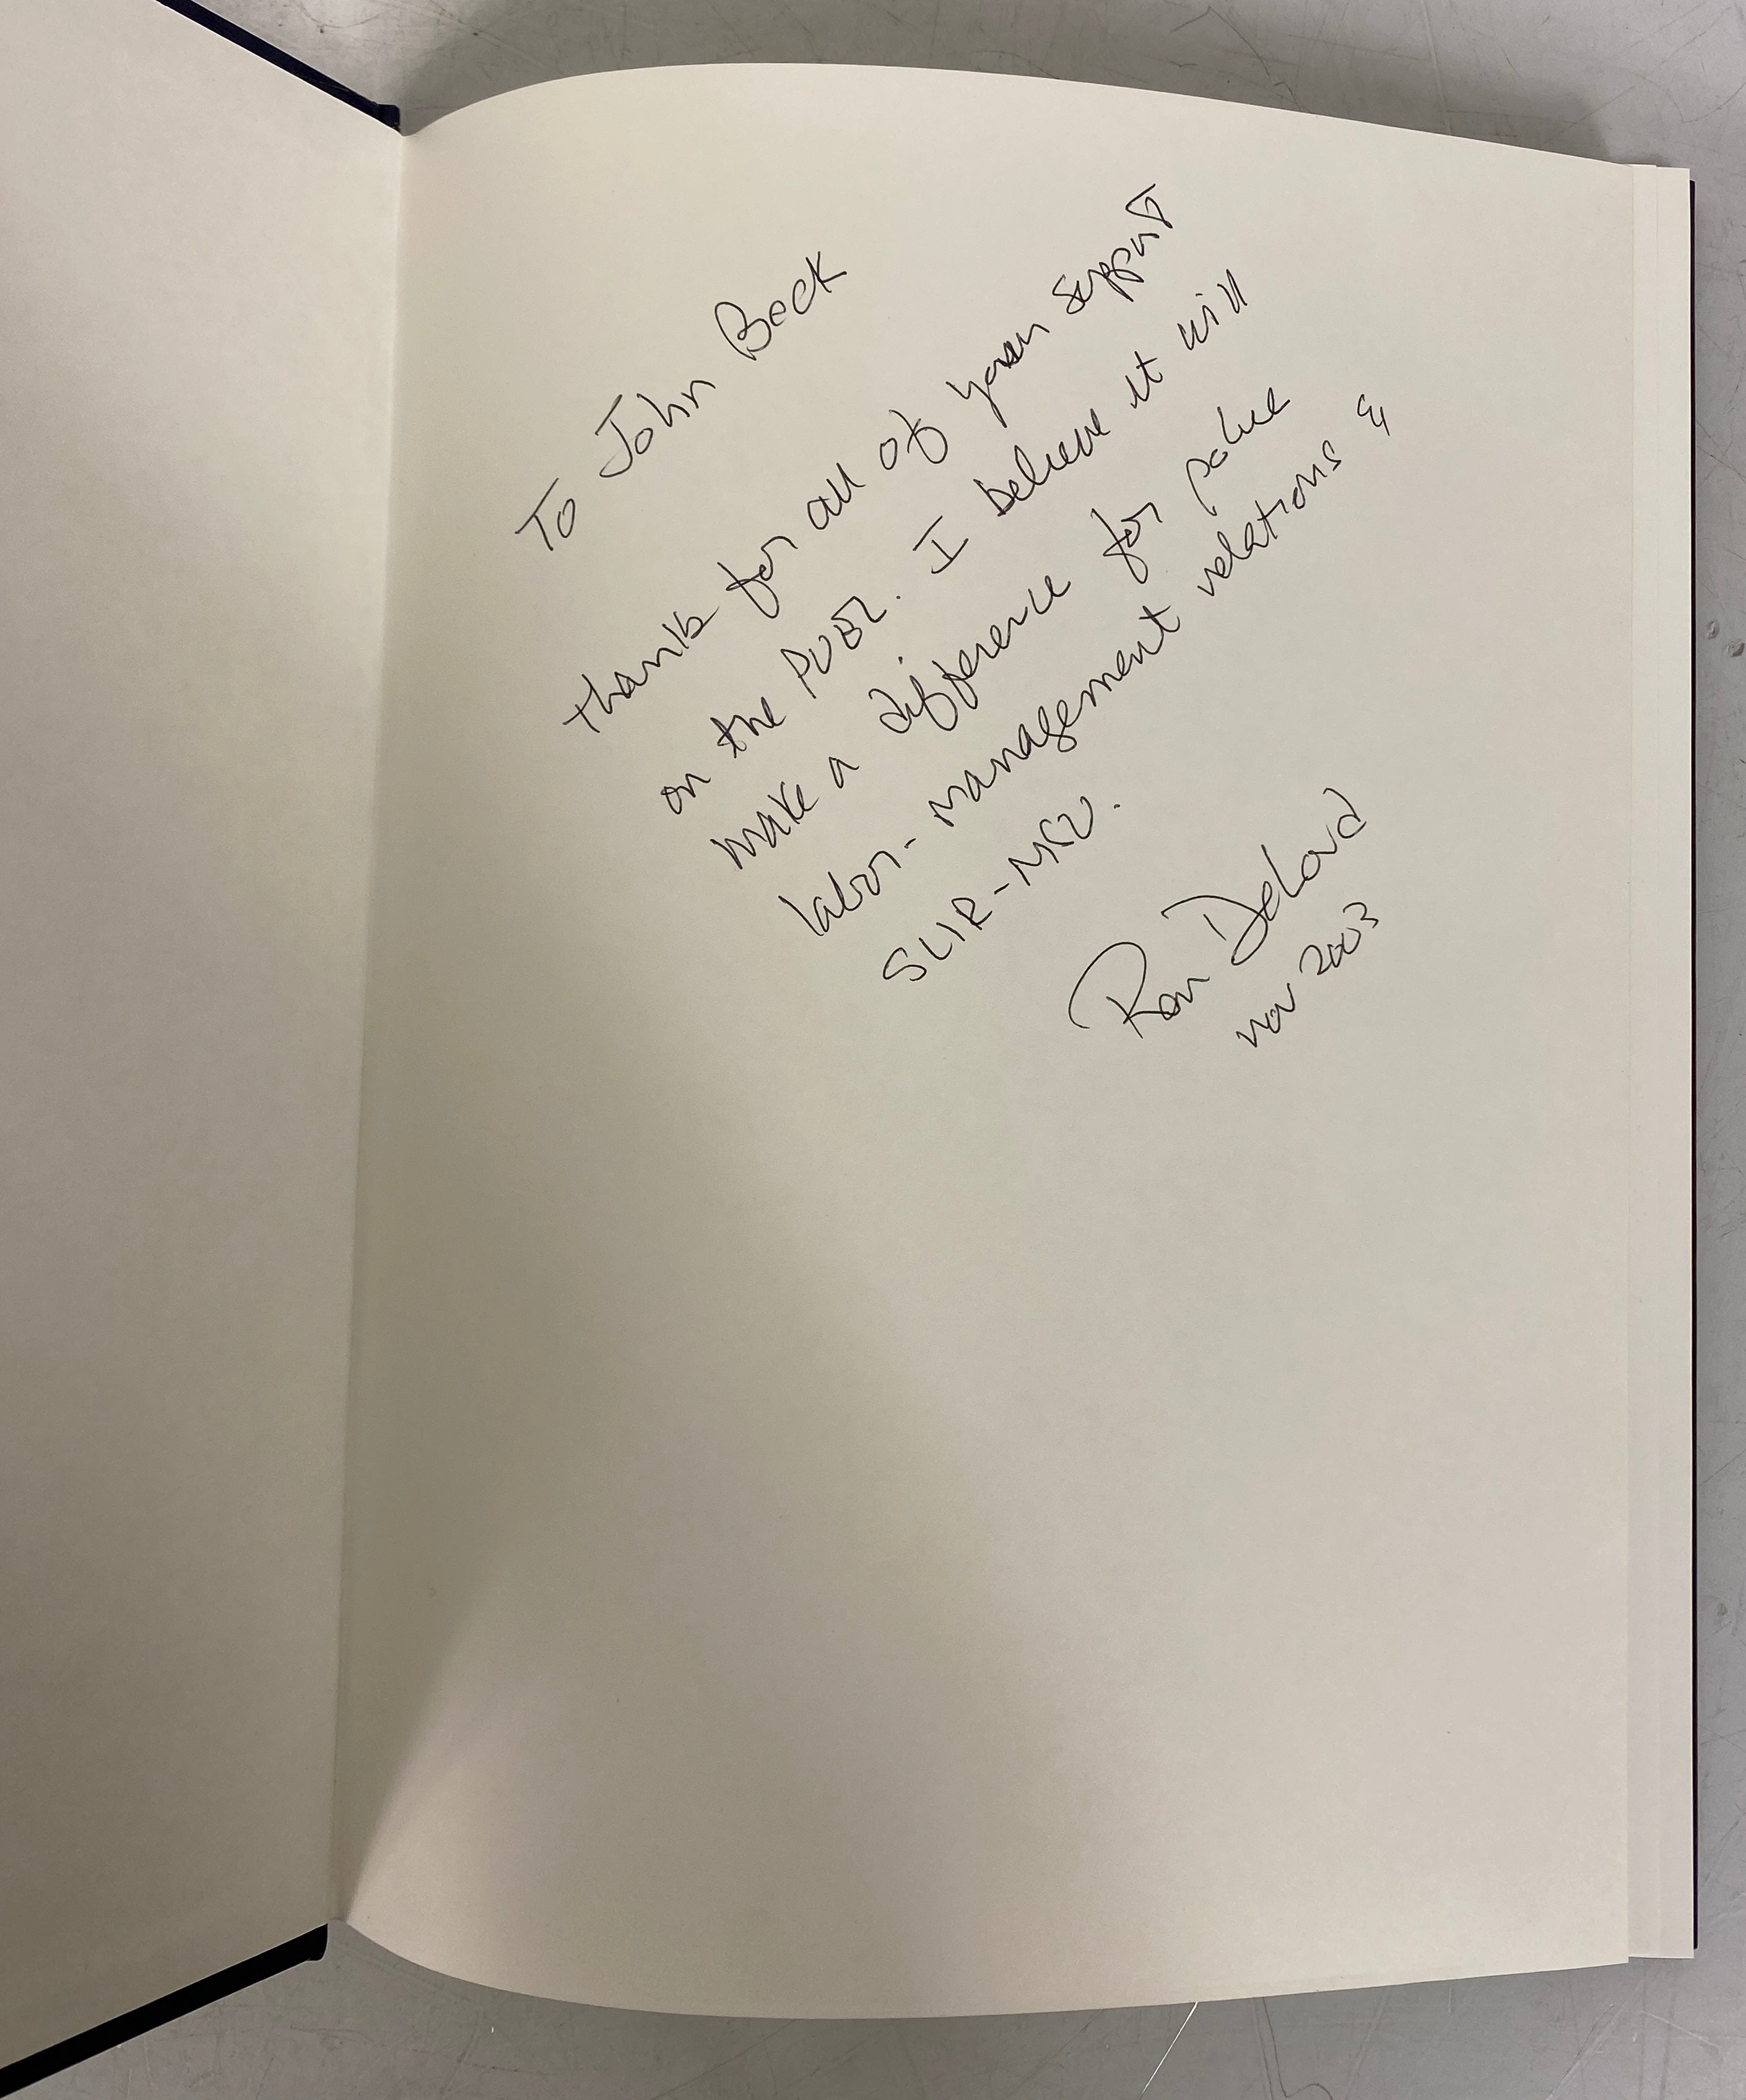 To John Beck
Thanks for all of your support
on the PUBL. I believe it will
make a difference for police
labor-management relations &
SLIR-MSU.
Ron DeLord
Nov 2003